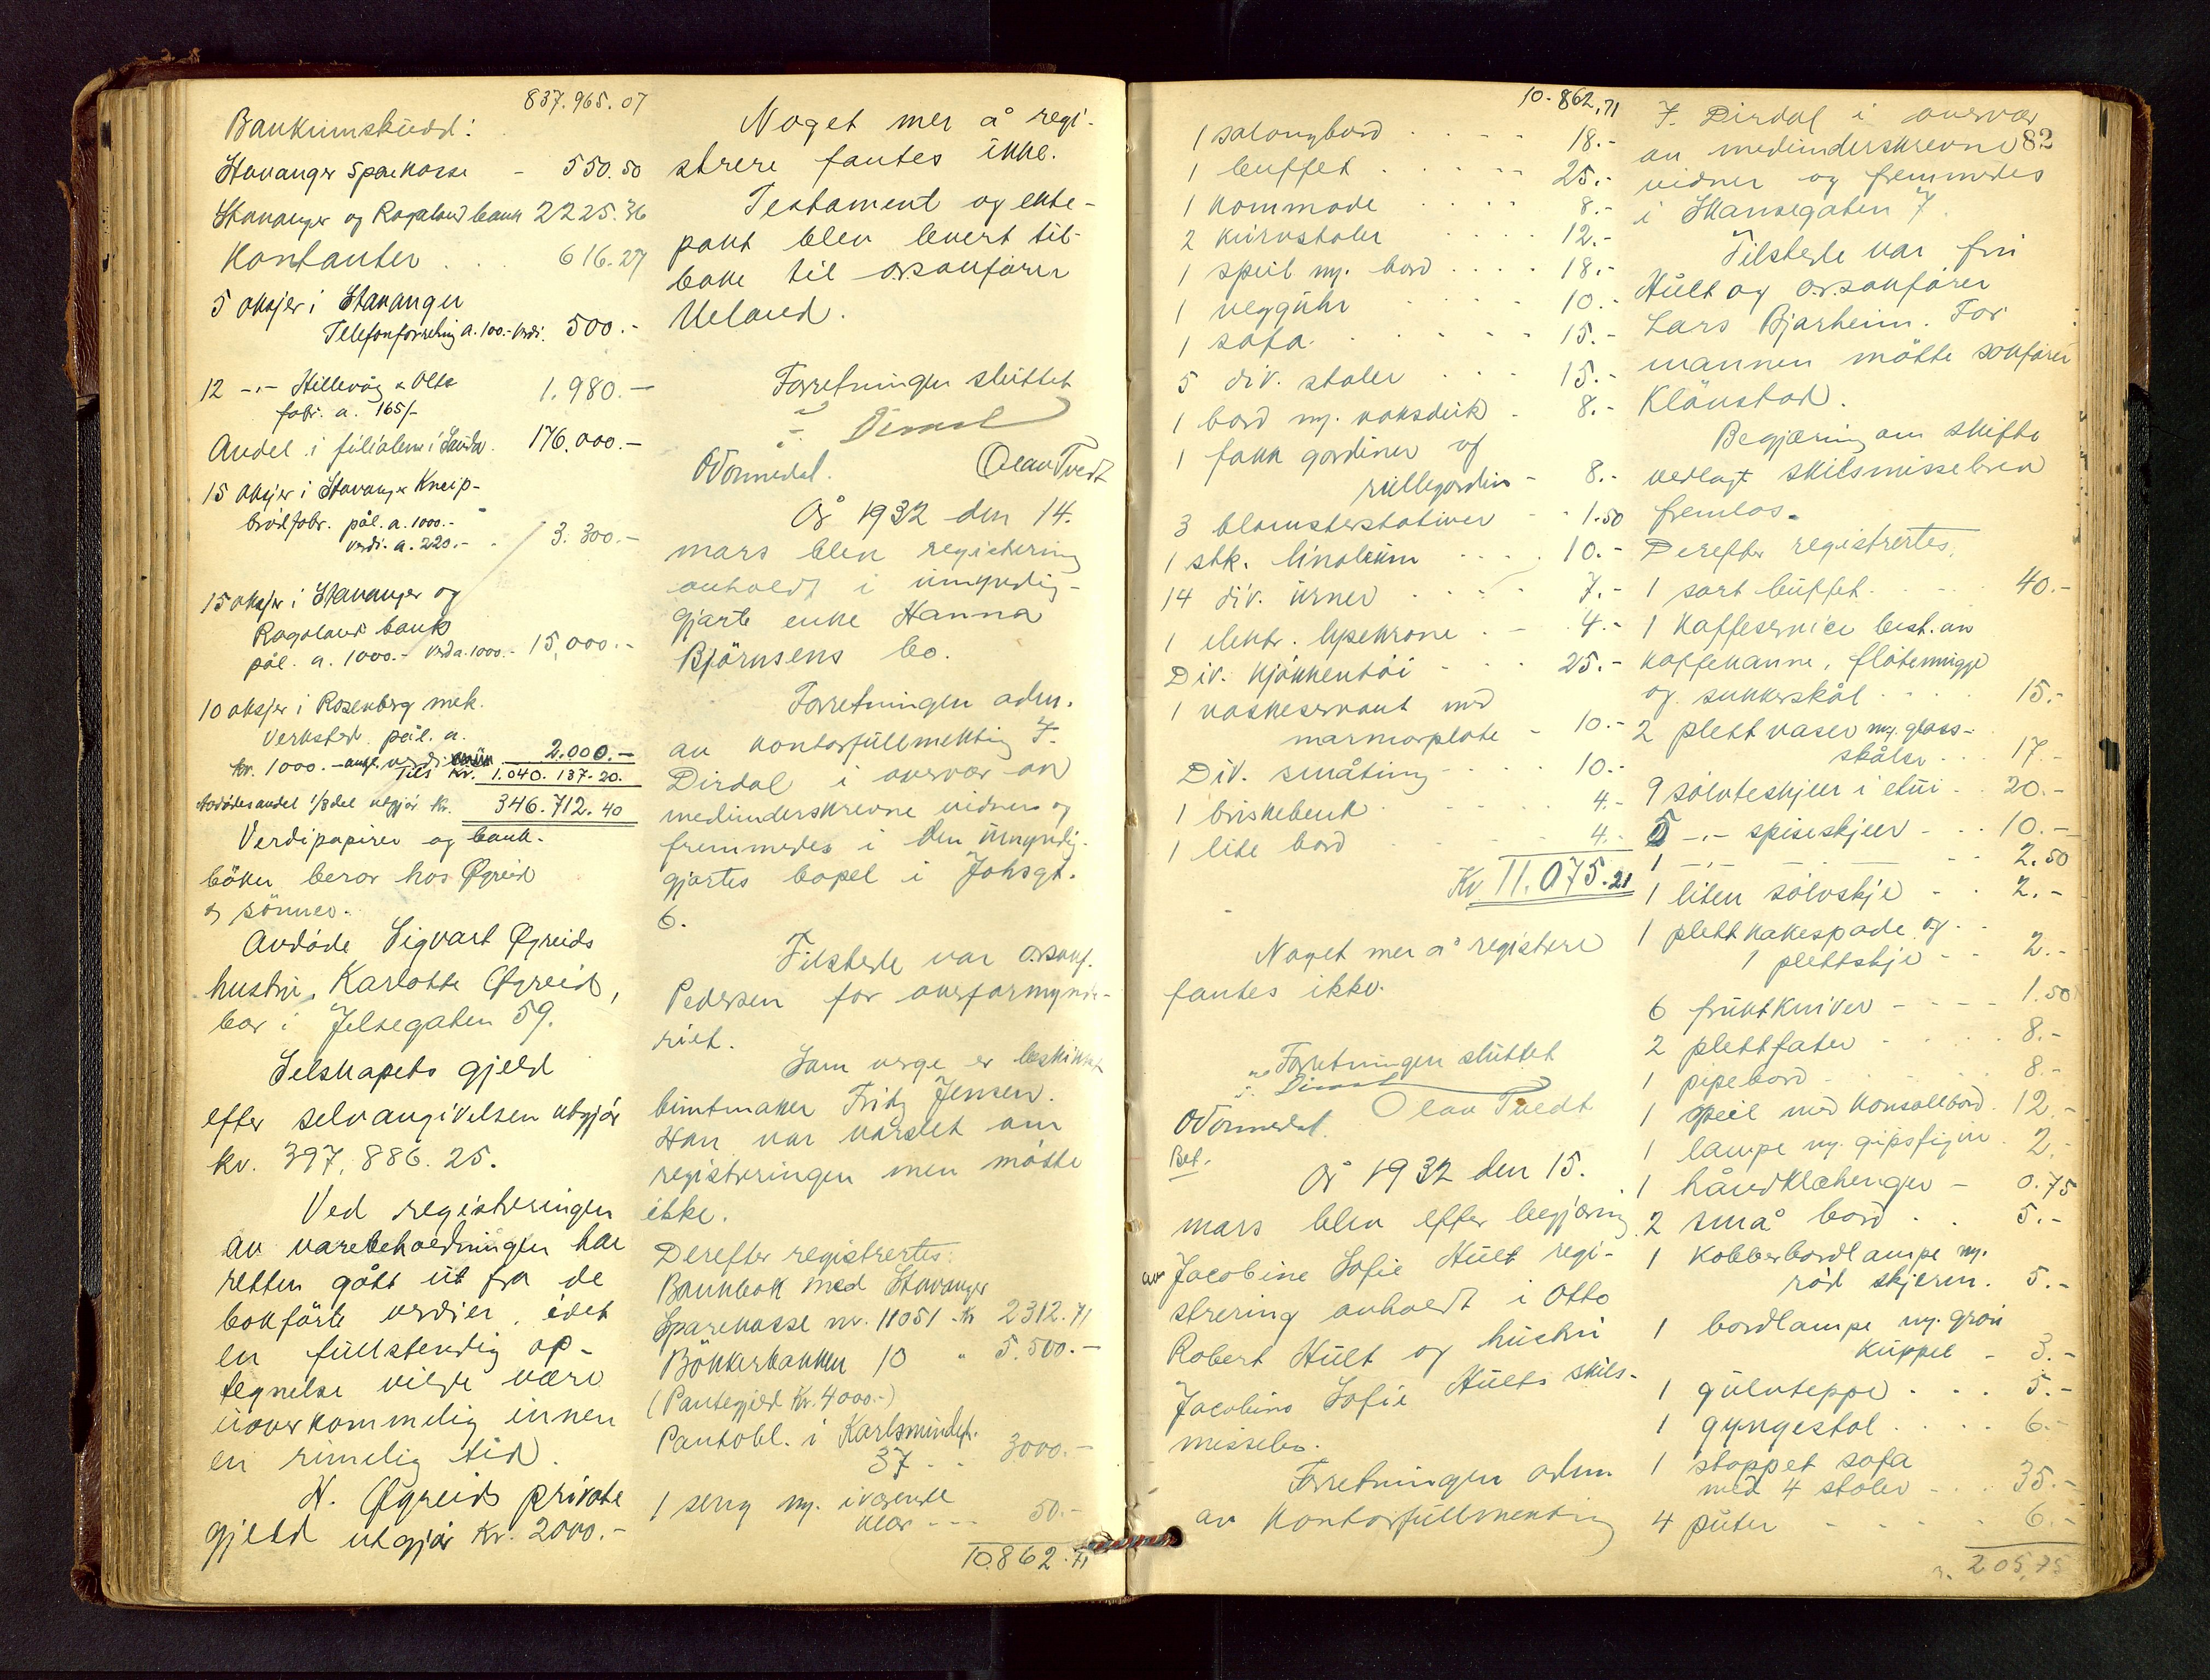 837.965.07
Bankinnskudd:
Stavanger Sparekasse - 550.50
Stavanger og Rogaland bank 2225.36
Kontanter . . . 616.27
5 aksjer i Stavanger
Telefonforretning a. 100.- verdi. 500.-
12 -"- Hillevåg & Olte
fabr. a. 165/- 1.980.-
Andel i filialene i Sauda. 176.000.-
15 aksjer i Stavanger Kneip-
brödfabr. pål. a. 1000.-
verdi. a. 220.- . 3.300.-
15 aksjer i Stavanger og
Rogaland bank
pål. a. 1000.- verd a. 1000.- 15.000.-
10 aksjer i Rosenberg mek.
Verksted pål. a.
kr. 1000.- verdi 2.000.-
Tils Kr. 1.040.137.20.
Avdödes andel 1/3 del utgjör kr. 346.712.40
Verdipapirer og bank-
böker beror hos Øgreid
og sönner.
Avdöde Sigvart Øgreids
hustru, Karlotte Øgreid,
bor i Jelsegaten 59.
Selskapets gjeld
efter selvangivelsen utgjör
kr. 397.886.25.
Ved registreringen
av varebeholdningen har
retten gått ut fra de
bokförte verdier, idet
en fullstendig op-
tegnelse vilde være
uoverkommelig innen
en rimelig tid.
N. Øgreids private
gjeld utgjör kr. 2000.-
Noget mer å regi-
strere fantes ikke.
Testament og ekte-
pakt blev levert til-
bake til o.r.sakförer
Ueland.
Forretningen sluttet
Dirdal
O Vormedal. Olav Tvedt
År 1932 den 14.
mars blev registrering
avholdt i umyndig-
gjorte enke Hanna
Björnsens bo.
Forretningen adm.
av kontorfullmektig J.
Dirdal i overvær av
medunderskrevne vidner og
fremmedes i den umyndig-
gjortes bopel i Johsgt.
6.
Tilstede var o.r.sakf.
Pedersen for overformynde-
riet.
Som verge er beskikket
buntmaker Fritz Jensen.
Han var varslet om
registreringen men mötte
ikke.
Derefter registrertes:
Bankbok med Stavanger
Sparekasse nr. 11051 - kr 2312.71
Bökkerbakken 10 " 5.500.-
(Pantegjeld Kr. 4000.-)
Pantobl. i Karlsmindegt.
37 . . 3000.-
1 seng m. iværende
klær - - - 50.-
10.862.71
10.862,71
1 salongbord . . . . 18.-
1 buffet . . . . 25.-
1 kommode . . . . 8.-
2 kurvstoler . . . . 12.-
1 speil m. bord . . . . 18.-
1 vegguhr . . . . 10.-
1 sofa . . . . 15.-
5 div. stoler . . . 15.-
1 bord m. voksduk - 8.-
1 fakk gardiner og
rullegardin - 8.-
3 blomsterstativer - - 1.50
1 stk. linoleum . . . . 10.-
14 div. urner . . . . 7.-
1 elektr. lysekrone . - . 4.-
Div. kjökkentöi - . . . 25.-
1 vaskeservant med
marmorplate - 10.-
Div. småting . . . . 10.-
1 briskebenk . . . . 4.-
1 lite bord . . . . 4.-
Kr 11.075.21
Noget mer å registrere
fantes ikke.
Forretningen sluttet
Dirdal
O Vormedal. Olav Tvedt
Bet.
År 1932 den 15.
mars blev efter begjæring
av Jacobine Sofie Hult regi-
strering avholdt i Otto
Robert Hult og hustru
Jacobine Sofie Hults skils-
missebo.
Forretningen adm.
av kontorfullmektig
J. Dirdal i overvær
av medunderskrevne 82
vidner og fremmedes
i Skansegaten 7.
Tilstede var fru
Hult og o.r.sakförer
Lars Bjarheim. For
mannen mötte sakförer
Klövstad.
Begjæring om skifte
vedlagt skilsmissebrev
fremlas.
Derefter registrertes:
1 sort buffet . . . . 40.-
1 Kaffeservice best. av
Kaffekanne, flötemugge
og sukkerskål . . . . 15.-
2 plett vaser m. glass-
skåler . . . 17.-
9 sölvteskjeer i etui . . 20.-
5 -"- spiseskjeer - . . 10.-
1 -"- - . . 2.50
1 liten sölvskje - . 2.-
1 plett kakespade og . .
1 plettskje - . 2.-
6 fruktkniver - - - - 1.50
2 plettfater . . . . 8.-
1 pipebord . . . . 8.-
1 speil med konsollbord . 12.-
1 lampe m. gipsfigur . 2.-
1 håndklæhenger - 0.75
2 små bord . . 5.-
1 kobberbordlampe m.
röd skjerm. 5.-
1 bordlampe m. grön
kuppel - 3.-
1 gulvteppe . . . 5.-
1 gyngestol . . . . 6.-
1 stoppet sofa
med 4 stoler - . . 35.-
4 puter - - - - 6.-
205,75